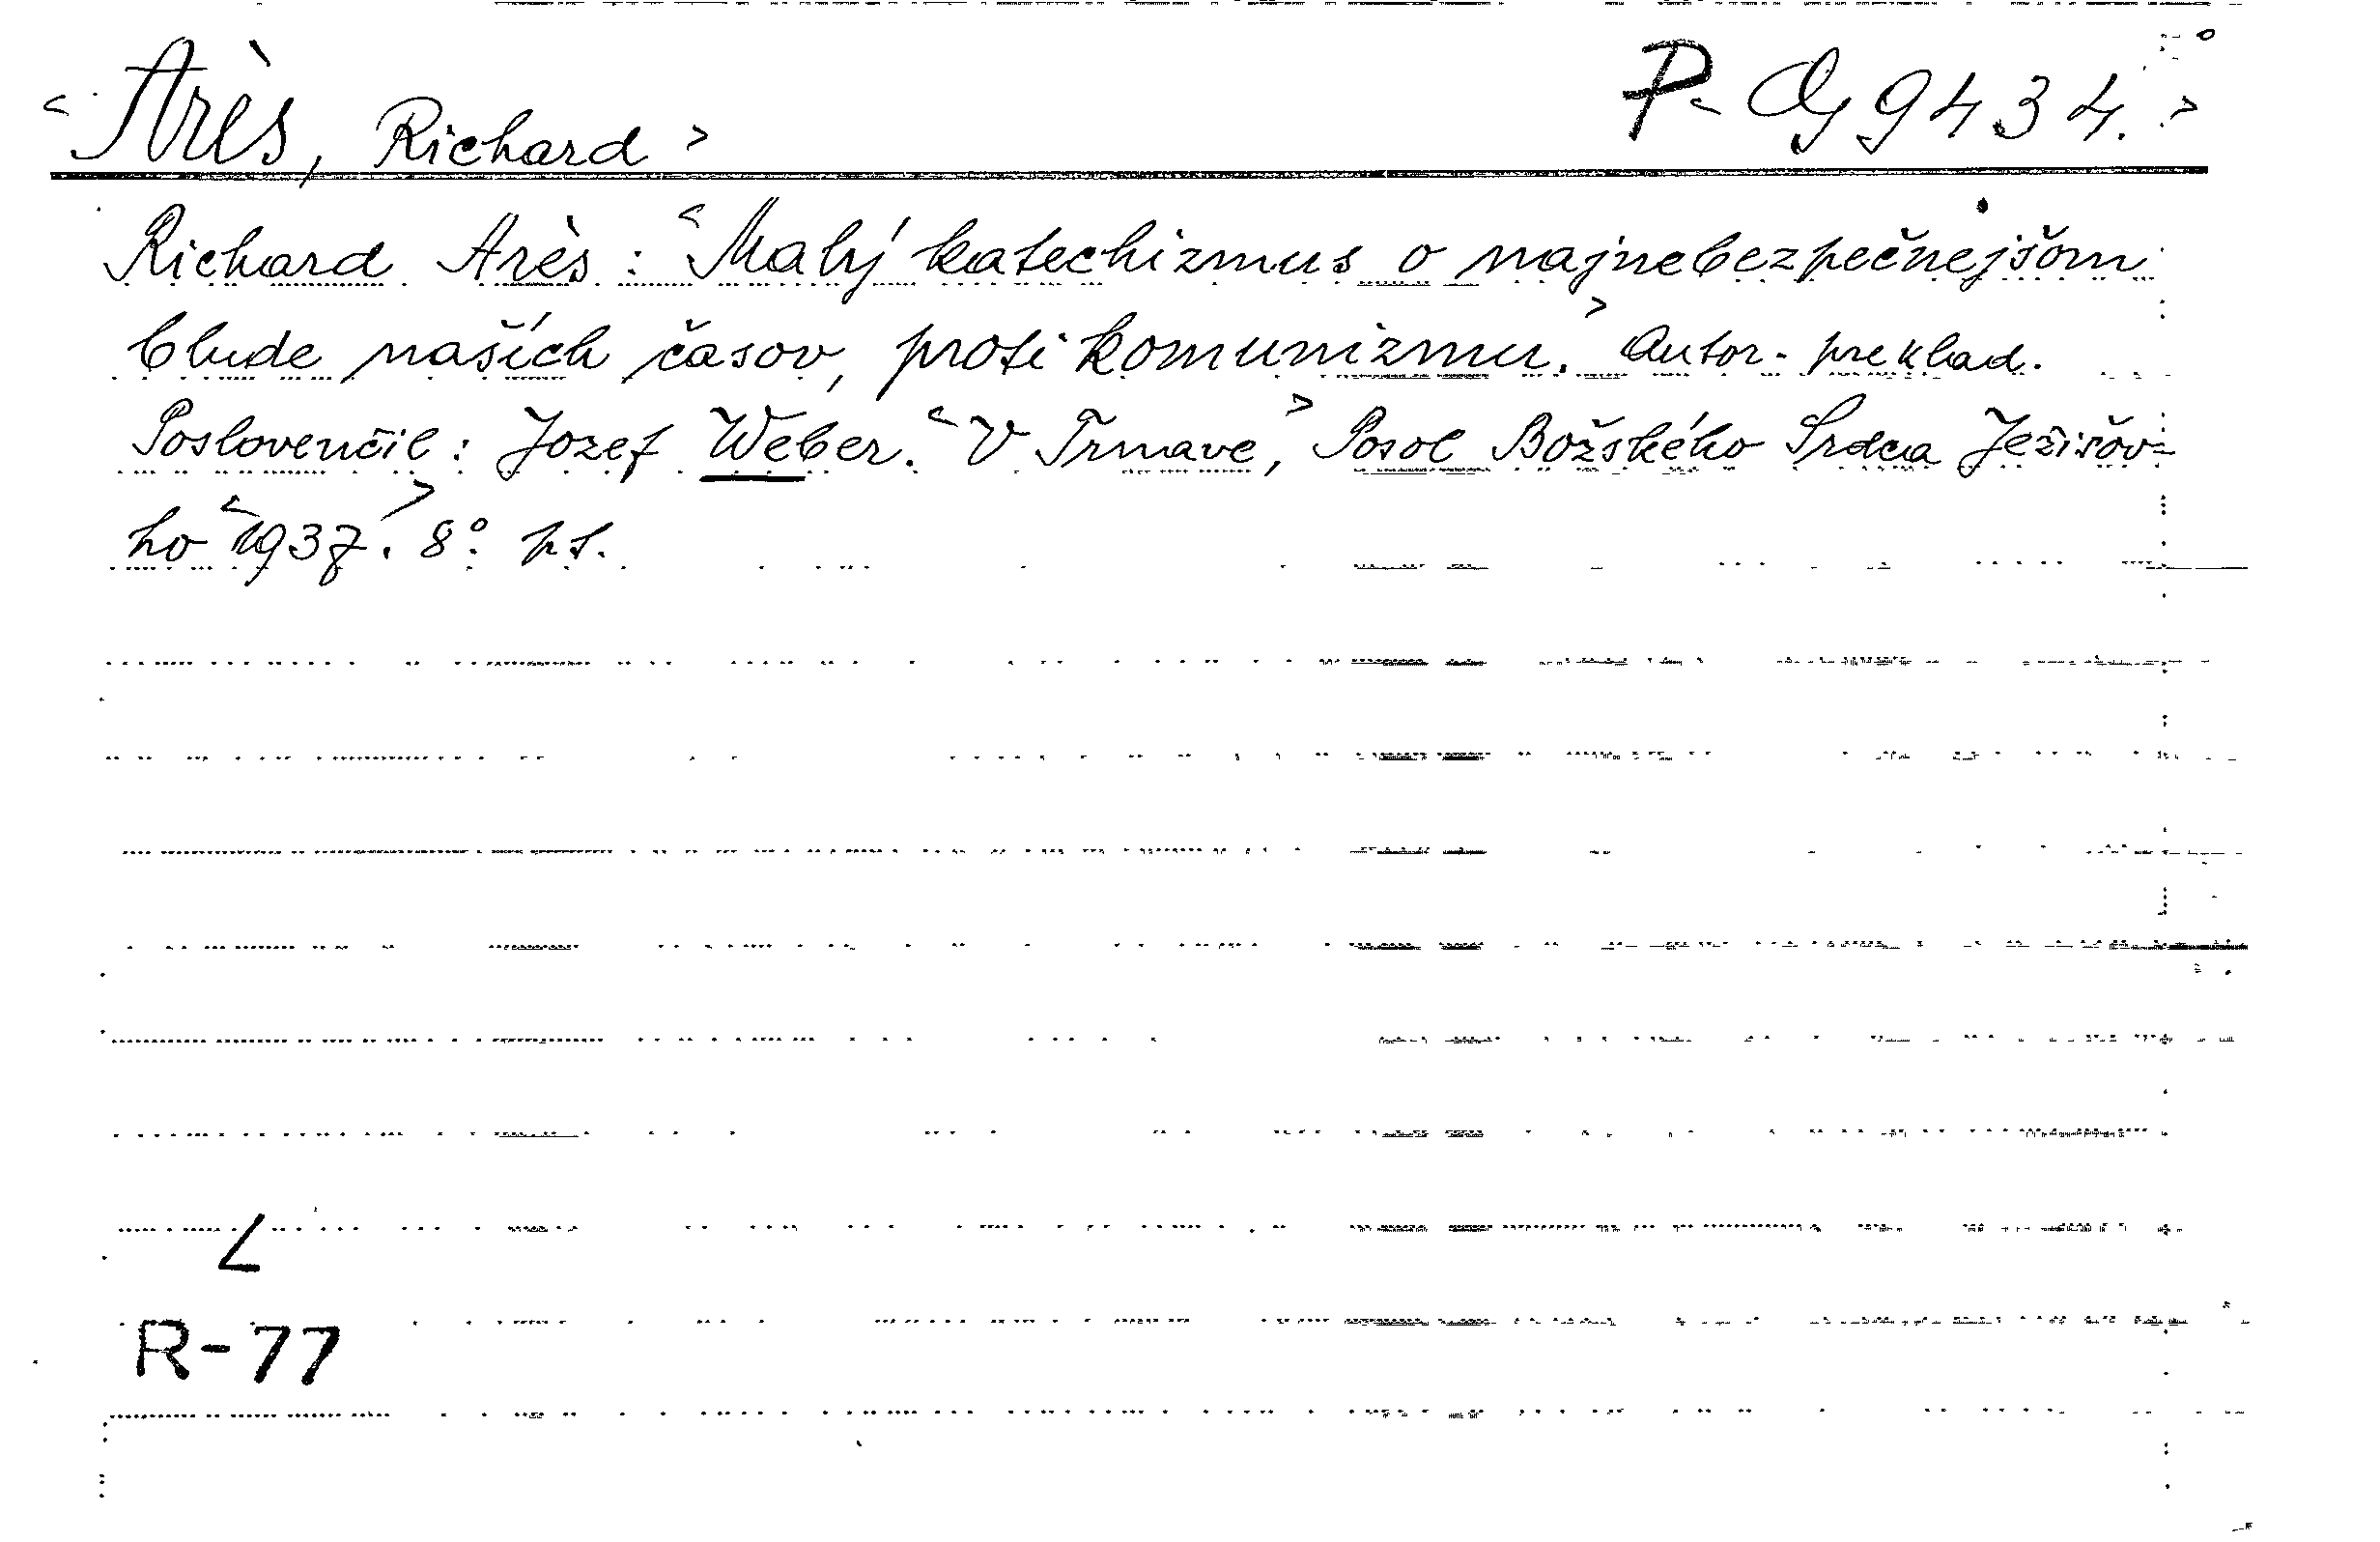 < Arès, Richard > P- Og 9434. >
Richard Arès: < Malý katechizmus o najnebezpečnejšom
blude našich časov, proti komunizmu. > Autor. preklad.
Poslovenčil: Jozef Weber. < V Trnave, > Posol Božského Srdca Ježišov-
ho < 1937. > 8°. ps.
L
R-77